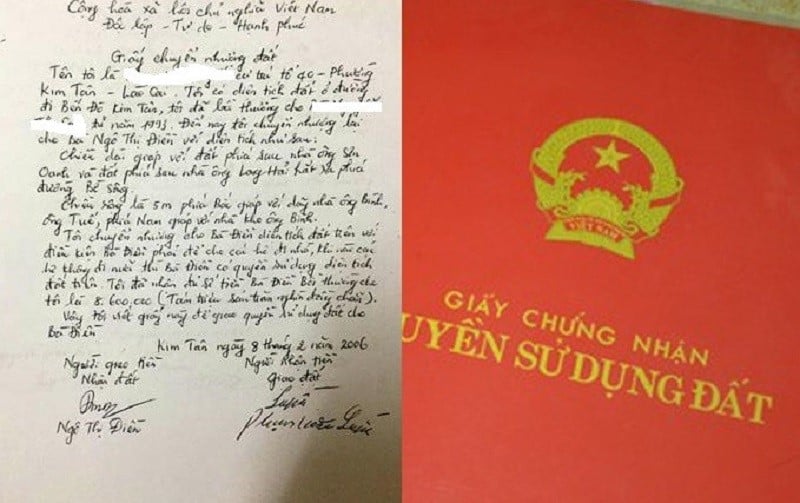 Cộng hoà xã hội chủ nghĩa Việt Nam
Độc lập - Tự do - Hạnh phúc
Giấy chuyển nhượng đất
Tên tôi là cư trú tổ 40 - Phường
Kim Tân - Lào Cai. Tôi có diện tích đất ở đường
đi Bến Đò Kim Tân, tôi đã bồi thường cho
từ năm 1993. Đến nay tôi chuyển nhượng lại
cho Bà Ngô Thị Điền với diện tích như sau:
Chiều dài giáp với đất phía sau nhà ông Sơn
Oanh và đất phía sau nhà ông Long Hải hắt ra phía
đường Bờ sông.
Chiều rộng là 5m phía Bắc giáp với dãy nhà ông Bình,
ông Tuế, phía Nam giáp với nhà kho ông Bình.
Tôi chuyển nhượng cho Bà Điền diện tích đất trên với
điều kiện Bà Điền phải để cho các hộ đi nhờ, khi nào các
hộ không đi nữa thì Bà Điền có quyền sử dụng diện tích
đất trên. Tôi đã nhận đủ số tiền Bà Điền Bồi thường cho
tôi là 8.600,000 (Tám triệu sáu trăm nghìn đồng chẵn).
Vậy tôi viết giấy này để giao quyền sử dụng đất cho
Bà Điền
Kim Tân ngày 8 tháng 2 năm 2006
Người giao tiền Người nhận tiền
Nhận đất Giao đất
Ngô Thị Điền
VIỆT NAM
GIẤY CHỨNG NHẬN
UYỀN SỬ DỤNG ĐẤT